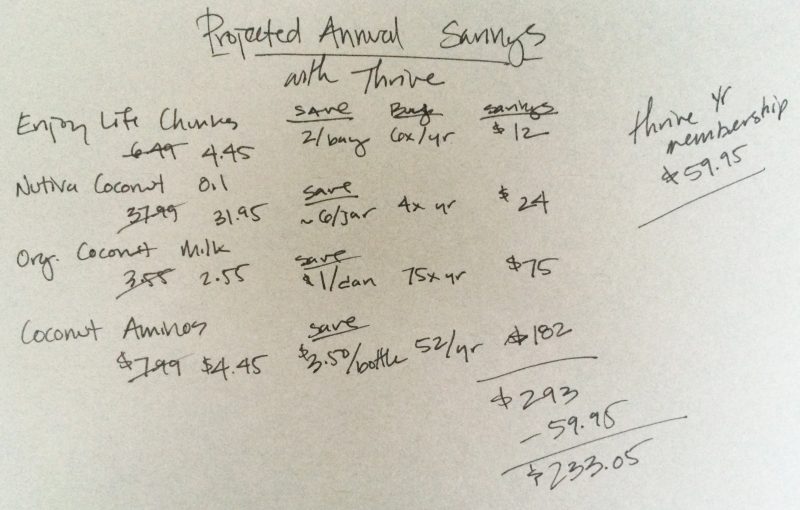 Projected Annual Savings
with Thrive
Enjoy Life Chunks save Buy savings
6.49 4.45 2/bag 6x/yr $12
thrive yr
membership
$59.95
Nutiva Coconut Oil save
37.99 31.95 ~6/jar 4x yr $24
Org. Coconut Milk save
3.55 2.55 $1/can 75x yr $75
Coconut Aminos save
$7.99 $4.45 $3.50/bottle 52/yr $182
$293
- 59.95
$233.05